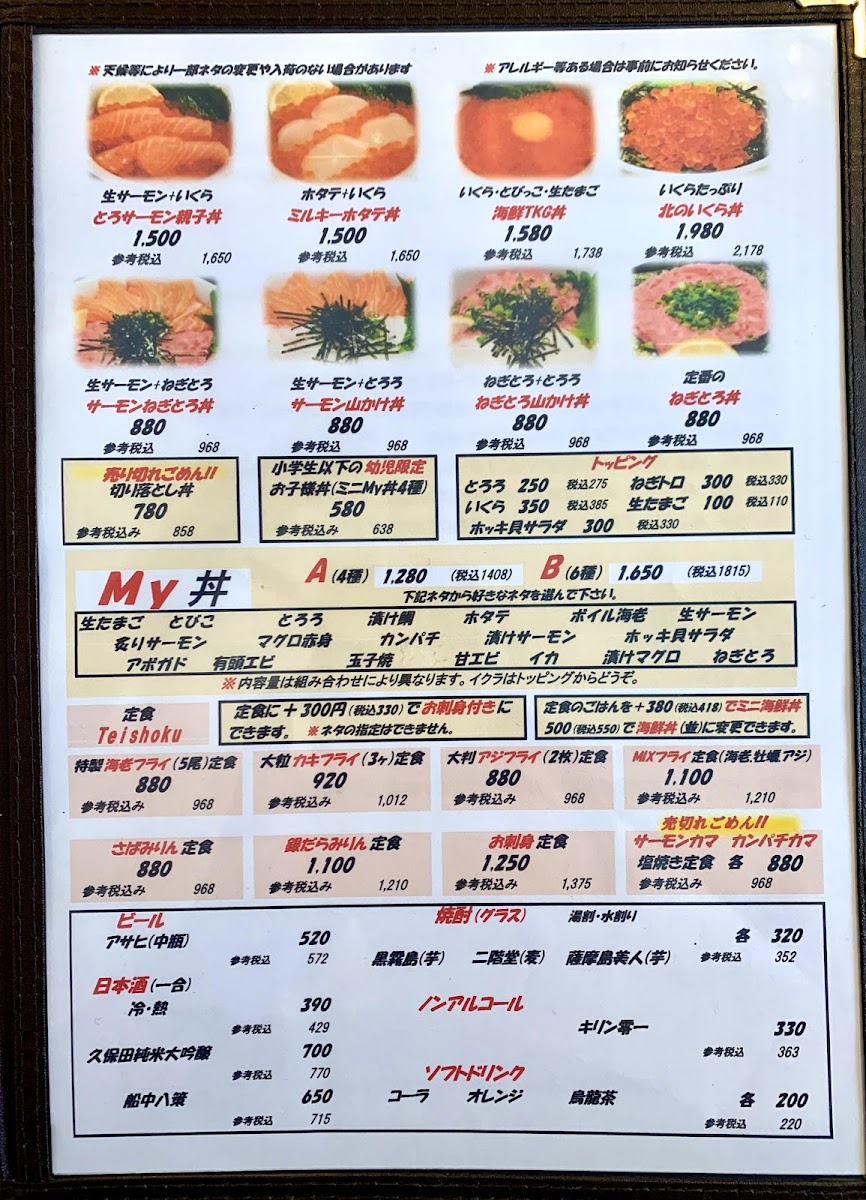 ※ 天候等により一部ネタの変更や入荷のない場合があります
※ アレルギー等ある場合は事前にお知らせください。
生サーモン+いくら
とろサーモン親子丼
1,500
参考税込 1,650
ホタテ+いくら
ミルキーホタテ丼
1,500
参考税込 1,650
いくら・とびっこ・生たまご
海鮮TKG丼
1,580
参考税込 1,738
いくらたっぷり
北のいくら丼
1,980
参考税込 2,178
生サーモン+ねぎとろ
サーモンねぎとろ丼
880
参考税込 968
生サーモン+とろろ
サーモン山かけ丼
880
参考税込 968
ねぎとろ+とろろ
ねぎとろ山かけ丼
880
参考税込 968
定番の
ねぎとろ丼
880
参考税込 968
売り切れごめん!!
切り落とし丼
780
参考税込み 858
小学生以下の 幼児限定
お子様丼(ミニMy丼4種)
580
参考税込み 638
トッピング
とろろ 250 税込275 ねぎトロ 300 税込330
いくら 350 税込385 生たまご 100 税込110
ホッキ貝サラダ 300 税込330
My 丼
A (4種) 1,280 (税込1408) B (6種) 1,650 (税込1815)
下記ネタから好きなネタを選んで下さい。
生たまご とびこ とろろ 漬け鯛 ホタテ ボイル海老 生サーモン
炙りサーモン マグロ赤身 カンパチ 漬けサーモン ホッキ貝サラダ
アボガド 有頭エビ 玉子焼 甘エビ イカ 漬けマグロ ねぎとろ
※内容量は組み合わせにより異なります。イクラはトッピングからどうぞ。
定食
Teishoku
定食に+300円(税込330)でお刺身付きに
できます。 ※ネタの指定はできません。
定食のごはんを+380(税込418)でミニ海鮮丼
500(税込550)で海鮮丼(並)に変更できます。
特製 海老フライ(5尾)定食
880
参考税込み 968
大粒 カキフライ(3ヶ)定食
920
参考税込み 1,012
大判 アジフライ(2枚)定食
880
参考税込み 968
MIXフライ 定食(海老、牡蠣、アジ)
1,100
参考税込み 1,210
さばみりん 定食
880
参考税込み 968
銀だらみりん 定食
1,100
参考税込み 1,210
お刺身 定食
1,250
参考税込み 1,375
売切れごめん!!
サーモンカマ カンパチカマ
塩焼き定食 各 880
参考税込み 968
ビール
アサヒ(中瓶) 520
参考税込 572
日本酒(一合)
冷・熱 390
参考税込 429
久保田純米大吟醸 700
参考税込 770
船中八策 650
参考税込 715
焼酎(グラス) 湯割・水割り
各 320
黒霧島(芋) 二階堂(麦) 薩摩島美人(芋) 参考税込 352
ノンアルコール
キリン零一 330
参考税込 363
ソフトドリンク
コーラ オレンジ 烏龍茶 各 200
参考税込 220